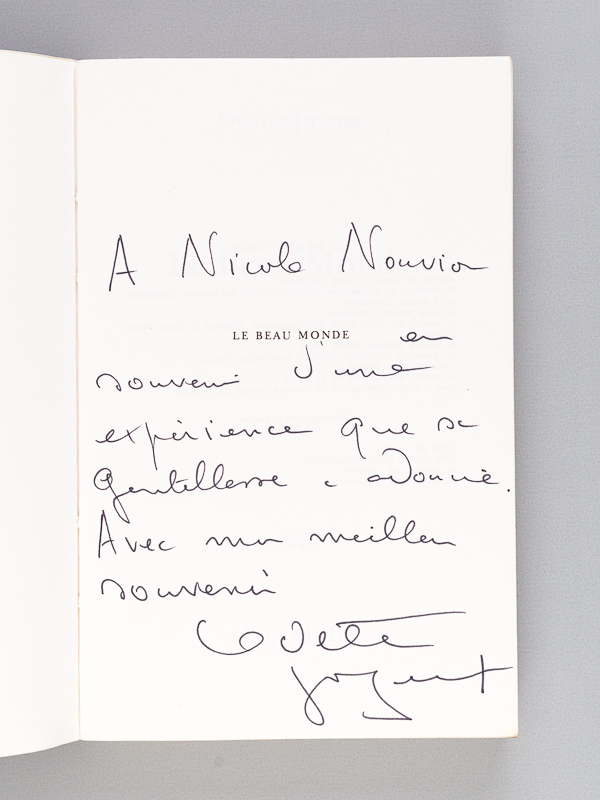 A Nicole Nouvion
LE BEAU MONDE en
souvenir d'une
expérience que sa
Gentillesse a
Avec mon meilleur
souvenir
Odette
Joyeux